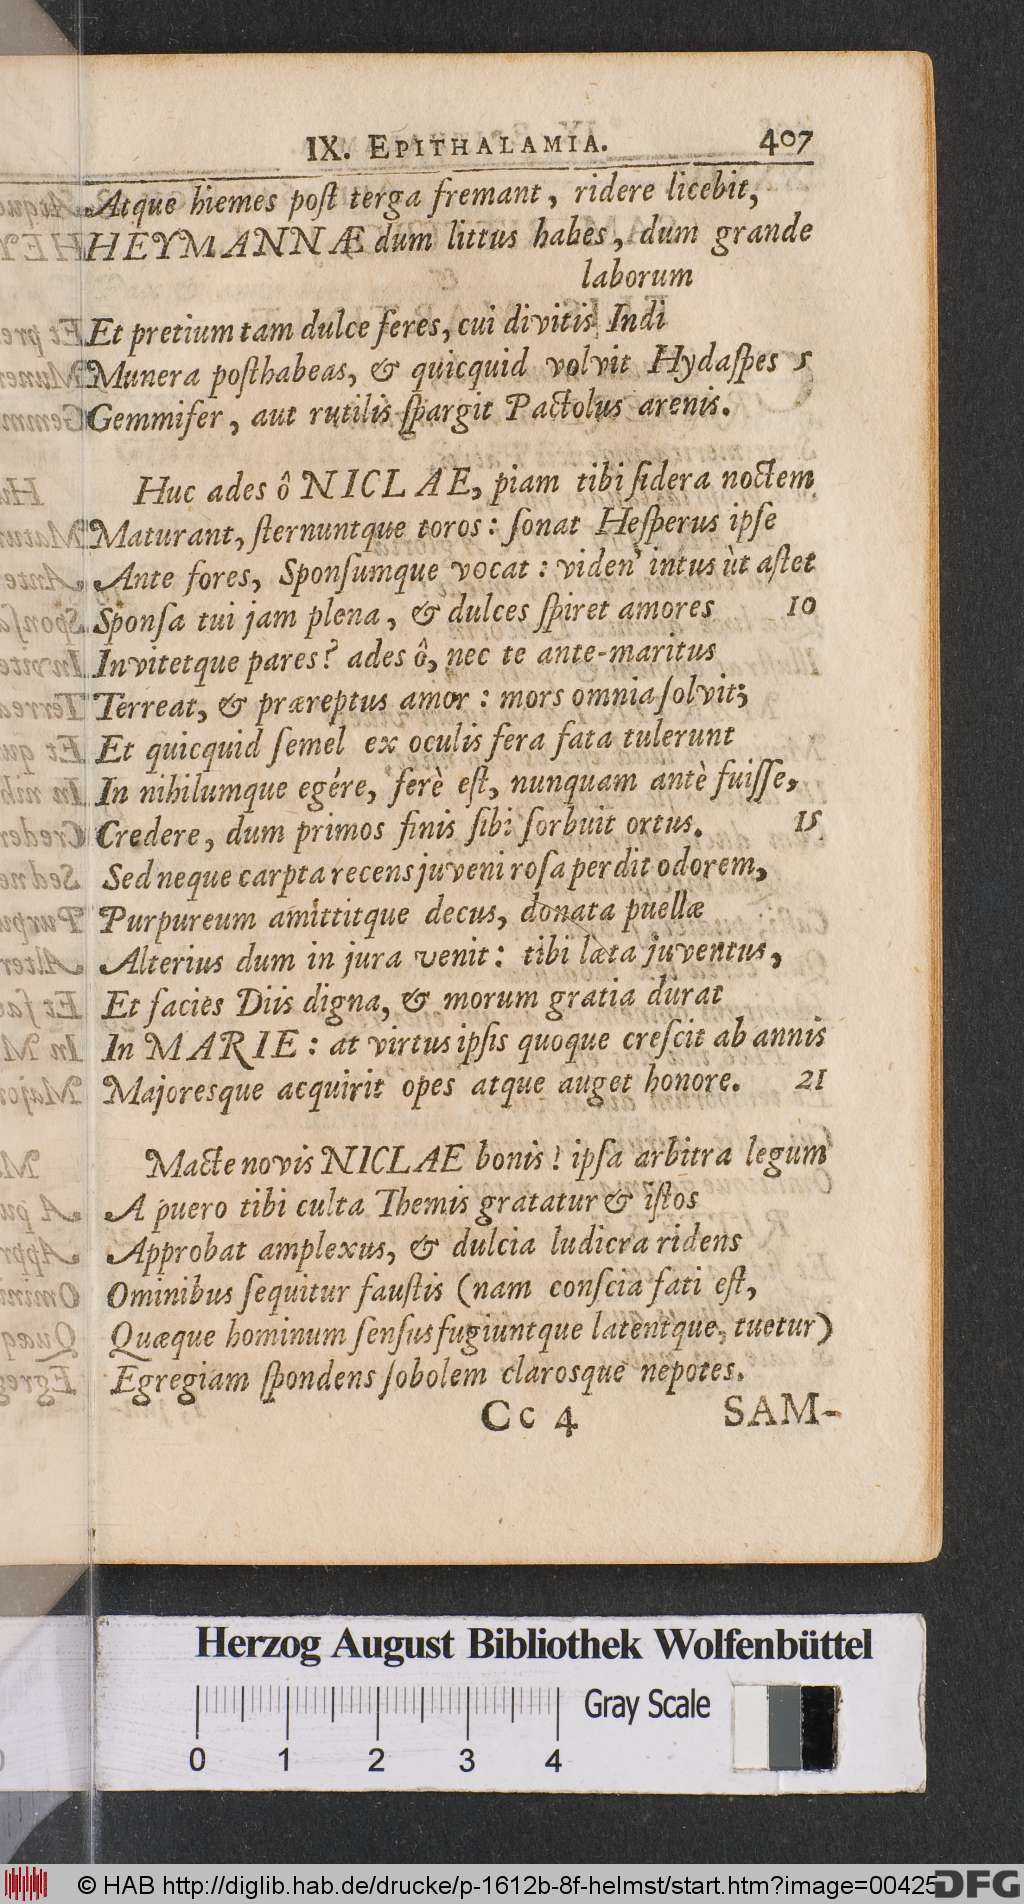 IX. EPITHALAMIA. 407
Atque hiemes poſt terga fremant, ridere licebit,
HEYMANNÆ dum littus habes, dum grande
laborum
Et pretium tam dulce feres, cui divitis Indi
Munera poſthabeas, & quicquid volvit Hydaſpes 5
Gemmifer, aut rutilis ſpargit Pactolus arenis.
Huc ades ô NICLAE, piam tibi ſidera noctem
Maturant, ſternuntque toros: ſonat Heſperus ipſe
Ante fores, Sponſumque vocat: viden' intus ùt aſtet
Sponſa tui jam plena, & dulces ſpiret amores 10
Invitetque pares? ades ô, nec te ante-maritus
Terreat, & præreptus amor: mors omnia ſolvit;
Et quicquid ſemel ex oculis fera fata tulerunt
In nihilumque egére, ferè eſt, nunquam antè fuiſſe,
Credere, dum primos finis ſibi ſorbuit ortus. 15
Sed neque carpta recens juveni roſa perdit odorem,
Purpureum amittitque decus, donata puellæ
Alterius dum in jura venit: tibi læta juventus,
Et facies Diis digna, & morum gratia durat
In MARIE: at virtus ipſis quoque creſcit ab annis
Majoresque acquirit opes atque auget honore. 21
Macte novis NICLAE bonis! ipſa arbitra legum
A puero tibi culta Themis gratatur & iſtos
Approbat amplexus, & dulcia ludicra ridens
Ominibus ſequitur fauſtis (nam conſcia fati eſt,
Quæque hominum ſenſus fugiuntque latentque, tuetur)
Egregiam ſpondens ſobolem clarosque nepotes.
Cc 4 SAM-
Herzog August Bibliothek Wolfenbüttel
Gray Scale
0 1 2 3 4
© HAB http://diglib.hab.de/drucke/p-1612b-8f-helmst/start.htm?image=00425
DFG